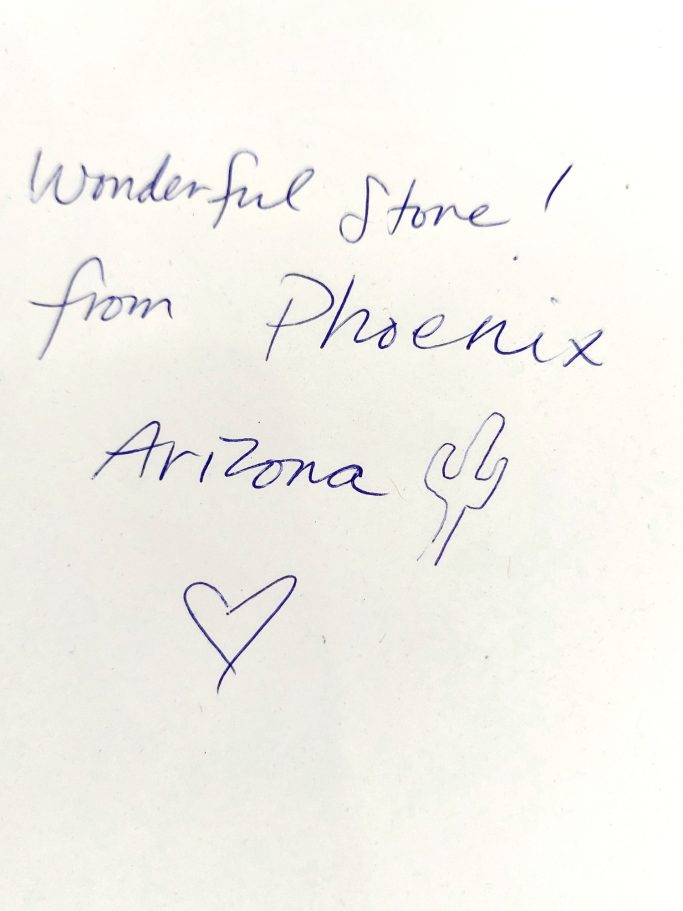 Wonderful Store!
from Phoenix
Arizona